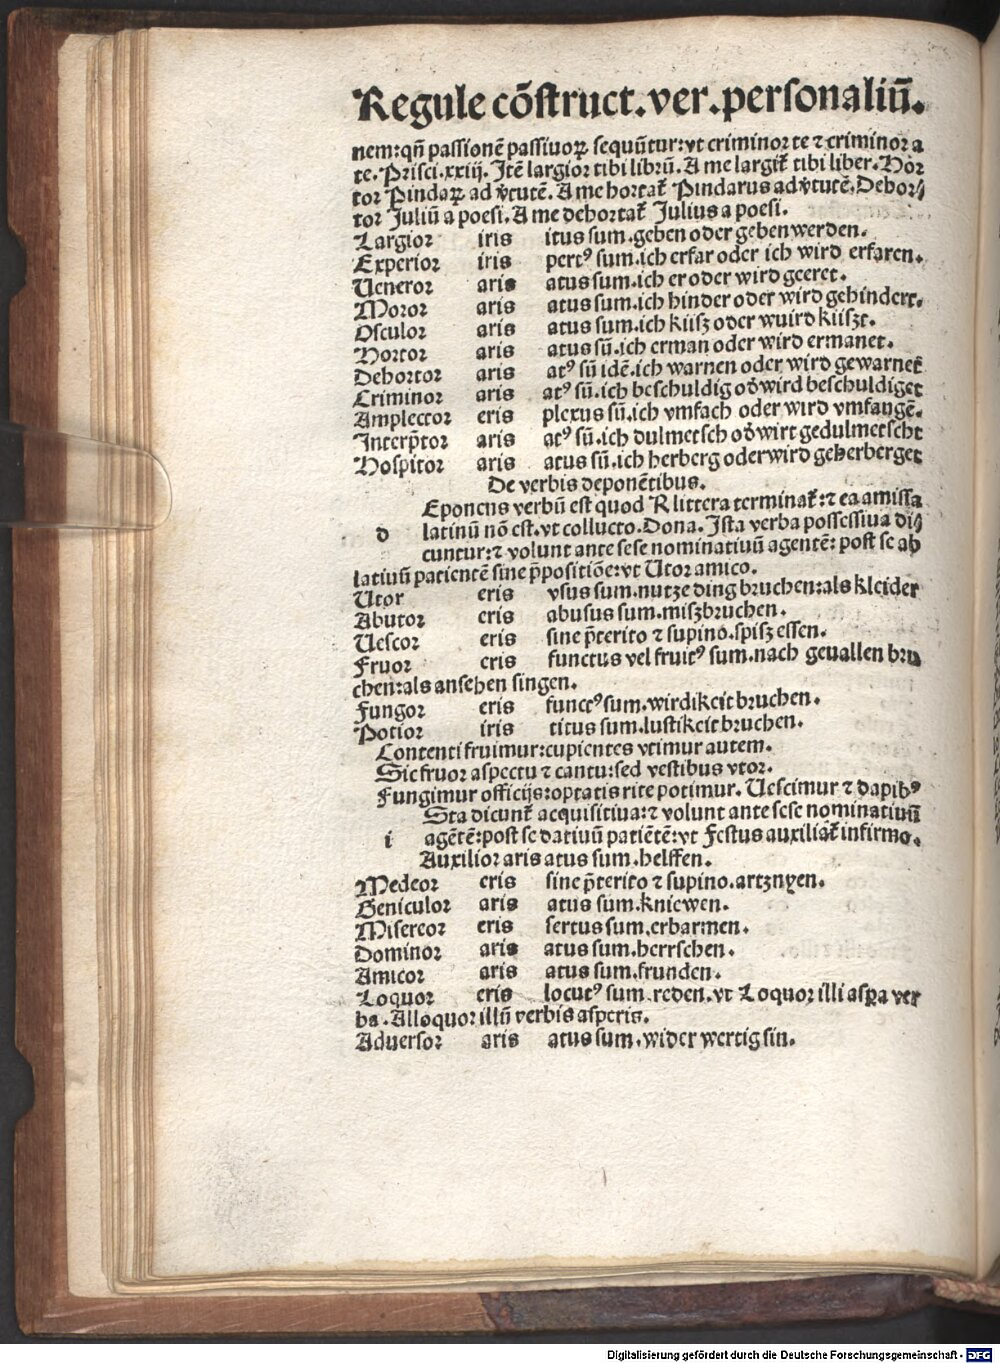 Regule cõstruct. ver. personaliũ.
nem: qñ passionẽ passiuoꝝ sequũtur: vt criminor te ⁊ criminor a
te. Prisci. xxiij. Itẽ largior tibi librũ. A me largit̃ tibi liber. Hor
tor Pindaꝝ ad v̓tutẽ. A me hortat̃ Pindarus ad v̓tutẽ. Dehor⸗
tor Juliũ a poesi. A me dehortat̃ Julius a poesi.
Largior iris itus sum. geben oder geben werden.
Experior iris pertꝰ sum. ich erfar oder ich wird erfaren.
Ueneror aris atus sum. ich er oder wird geeret.
Moror aris atus sum. ich hinder oder wird gehindert.
Osculor aris atus sum. ich küsz oder wuird küszt.
Hortor aris atus sũ. ich erman oder wird ermanet.
Dehortor aris atꝰ sũ idẽ. ich warnen oder wird gewarnet
Criminor aris atꝰ sũ. ich beschuldig od̓ wird beschuldiget
Amplector eris plexus sũ. ich vmfach oder wird vmfangẽ.
Interp̃tor aris atꝰ sũ. ich dulmetsch od̓ wirt gedulmetscht
Hospitor aris atus sũ. ich herberg oder wird geherberget
De verbis deponẽtibus.
Eponens verbũ est quod R littera terminat̃: ⁊ ea amissa
d latinũ nõ est. vt collucto. Dona. Ista verba possessiua di⸗
cuntur: ⁊ volunt ante sese nominatiuũ agentẽ: post se ab
latiuũ patientẽ sine p̃positiõe: vt Utor amico.
Utor eris vsus sum. nutze ding bruchen: als kleider
Abutor eris abusus sum. miszbruchen.
Uescor eris sine p̃terito ⁊ supino. spisz essen.
Fruor eris functus vel fruitꝰ sum. nach geuallen bru
chen: als ansehen singen.
Fungor eris functꝰ sum. wirdikeit bruchen.
Potior iris titus sum. lustikeit bruchen.
Contenti fruimur: cupientes vtimur autem.
Sic fruor aspectu ⁊ cantu: sed vestibus vtor.
Fungimur officijs: optatis rite potimur. Uescimur ⁊ dapibꝰ
Sta dicunt̃ acquisitiua: ⁊ volunt ante sese nominatiuũ
i agẽtẽ: post se datiuũ patiẽtẽ: vt Festus auxiliat̃ infirmo.
Auxilior aris atus sum. helffen.
Medeor eris sine p̃terito ⁊ supino. artznyen.
Geniculor aris atus sum. kniewen.
Misereor eris sertus sum. erbarmen.
Dominor aris atus sum. herrschen.
Amicor aris atus sum. frunden.
Loquor eris locutꝰ sum. reden. vt Loquor illi aspa ver
ba. Alloquor illũ verbis asperis.
Aduersor aris atus sum. wider wertig sin.
Digitalisierung gefördert durch die Deutsche Forschungsgemeinschaft - DFG